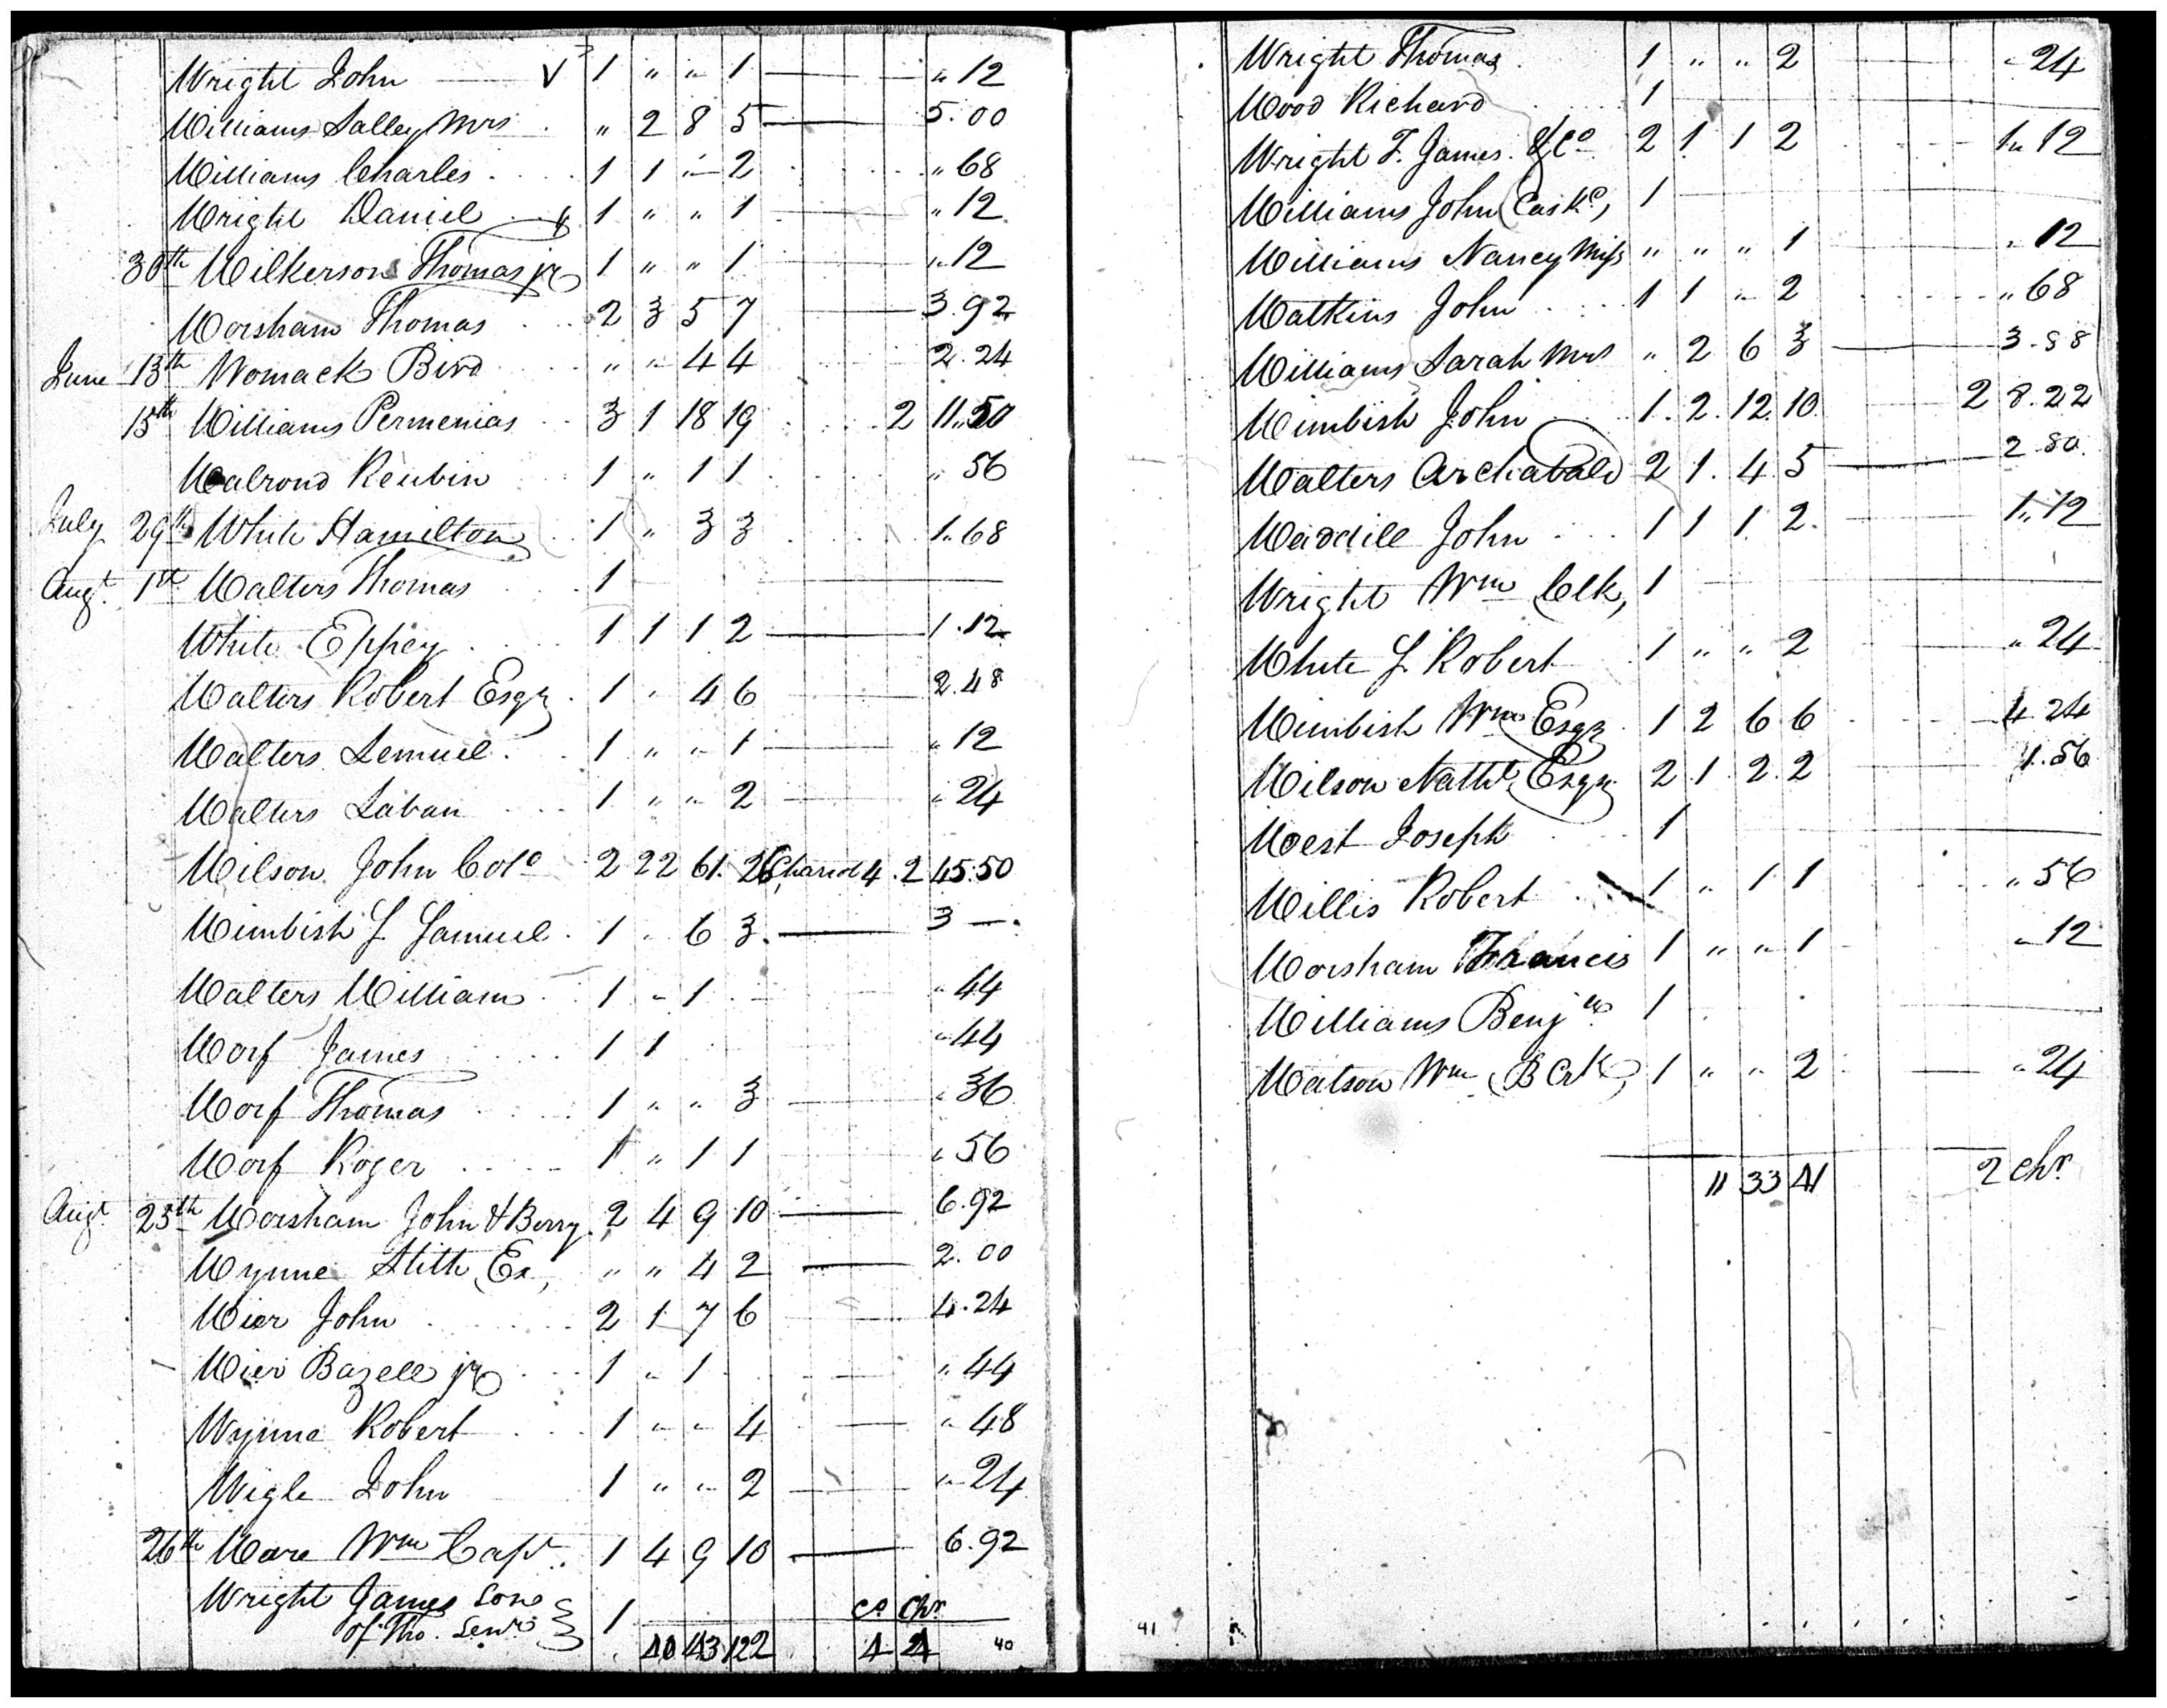 Wright John V 1 " " 1 " 12
Williams Salley Mrs " 2 8 5 5.00
Williams Charles 1 1 " 2 " 68
Wright Daniel 1 " " 1 " 12
30th Wilkerson Thomas jr 1 " " 1 " 12
Worsham Thomas 2 3 5 7 3.92
June 13th Womack Bird " " 4 4 2.24
15th Williams Permenias 3 1 18 19 2 11.50
Walrond Reubin 1 " 1 1 " 56
July 29th White Hamilton 1 " 3 3 1.68
Augt. 1st Walters Thomas 1
White Eppey 1 1 1 2 1.12
Walters Robert Esqr 1 " 4 6 2.48
Walters Lemuel 1 " " 1 " 12
Walters Laban 1 " " 2 " 24
Wilson John Colo 2 22 61 26 Chariot 4 2 45.50
Wimbish J Samuel 1 " 6 3 3 —
Walters William 1 " 1 " 44
Worf James 1 1 " 44
Worf Thomas 1 " " 3 " 36
Worf Roger 1 " 1 1 " 56
Augt 25th Worsham John & Berry 2 4 9 10 6.92
Wynne Stith Ex, " " 4 2 2.00
Wier John 2 1 7 6 4.24
Wier Bazell jr 1 " 1 " 44
Wynne Robert 1 " " 4 " 48
Wigle John 1 " " 2 " 24
26th Ware Wm Capt. 1 4 9 10 6.92
Wright James Son 1 Co Chr
of Tho. Senr
40 43 122 4 4 40
Wright Thomas 1 " " 2 " 24
Wood Richard 1
Wright T. James & Co 2 1 1 2 1 " 12
Williams John (Caske) 1
Williams Nancy Miss " " " 1 " 12
Watkins John 1 1 " 2 " 68
Williams Sarah Mrs " 2 6 3 3.88
Wimbish John 1 2 12 10 2 8.22
Walters Archabald 2 1 4 5 2.80
Waddill John 1 1 1 2 1.12
Wright Wm (Clk, 1
White J Robert 1 " " 2 " 24
Wimbish Wm Esqr 1 2 6 6 4.24
Wilson Nathl. Esqr 2 1 2 2 1.56
West Joseph 1
Willis Robert 1 " 1 1 " 56
Worsham Francis 1 " " 1 " 12
Williams Benjn 1
Watson Wm (B Crk) 1 " " 2 " 24
11 33 41 2 Chr
41